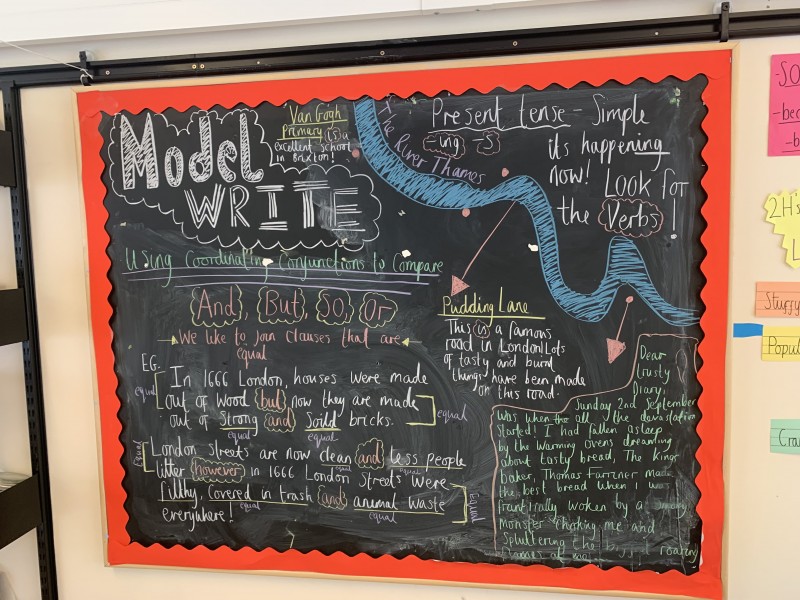 Model
WRITE
Van Gogh
Primary is a
excellent school
in Brixton!
The River Thames
Present Tense - Simple
-ing -s
its happening
now! Look for
the Verbs!
Using Coordinating Conjunctions to Compare
And, But, So, Or
We like to join clauses that are
equal
EG.
In 1666 London, houses were made
out of wood but now they are made
out of Strong and Soild bricks.
equal
equal
equal
equal
London streets are now clean and less people
litter however in 1666 London Streets were
filthy, covered in trash and animal waste
everywhere!
Equal
equal
equal
equal
equal
Pudding Lane
This is a famous
road in London! Lots
of tasty and
things have been made
on this road.
Dear
trusty
Diary,
Sunday 2nd September
was when the all the devastation
started! I had fallen asleep
by the warming ovens dreaming
about tasty bread, The kings
baker, Thomas Farriner made
the best bread when I was
frantrically woken by a
monster choking me and
spluttering the big roaring
flames at me
-SO
-bec
-b
2H's
L
Stuffy
Popul
Cra